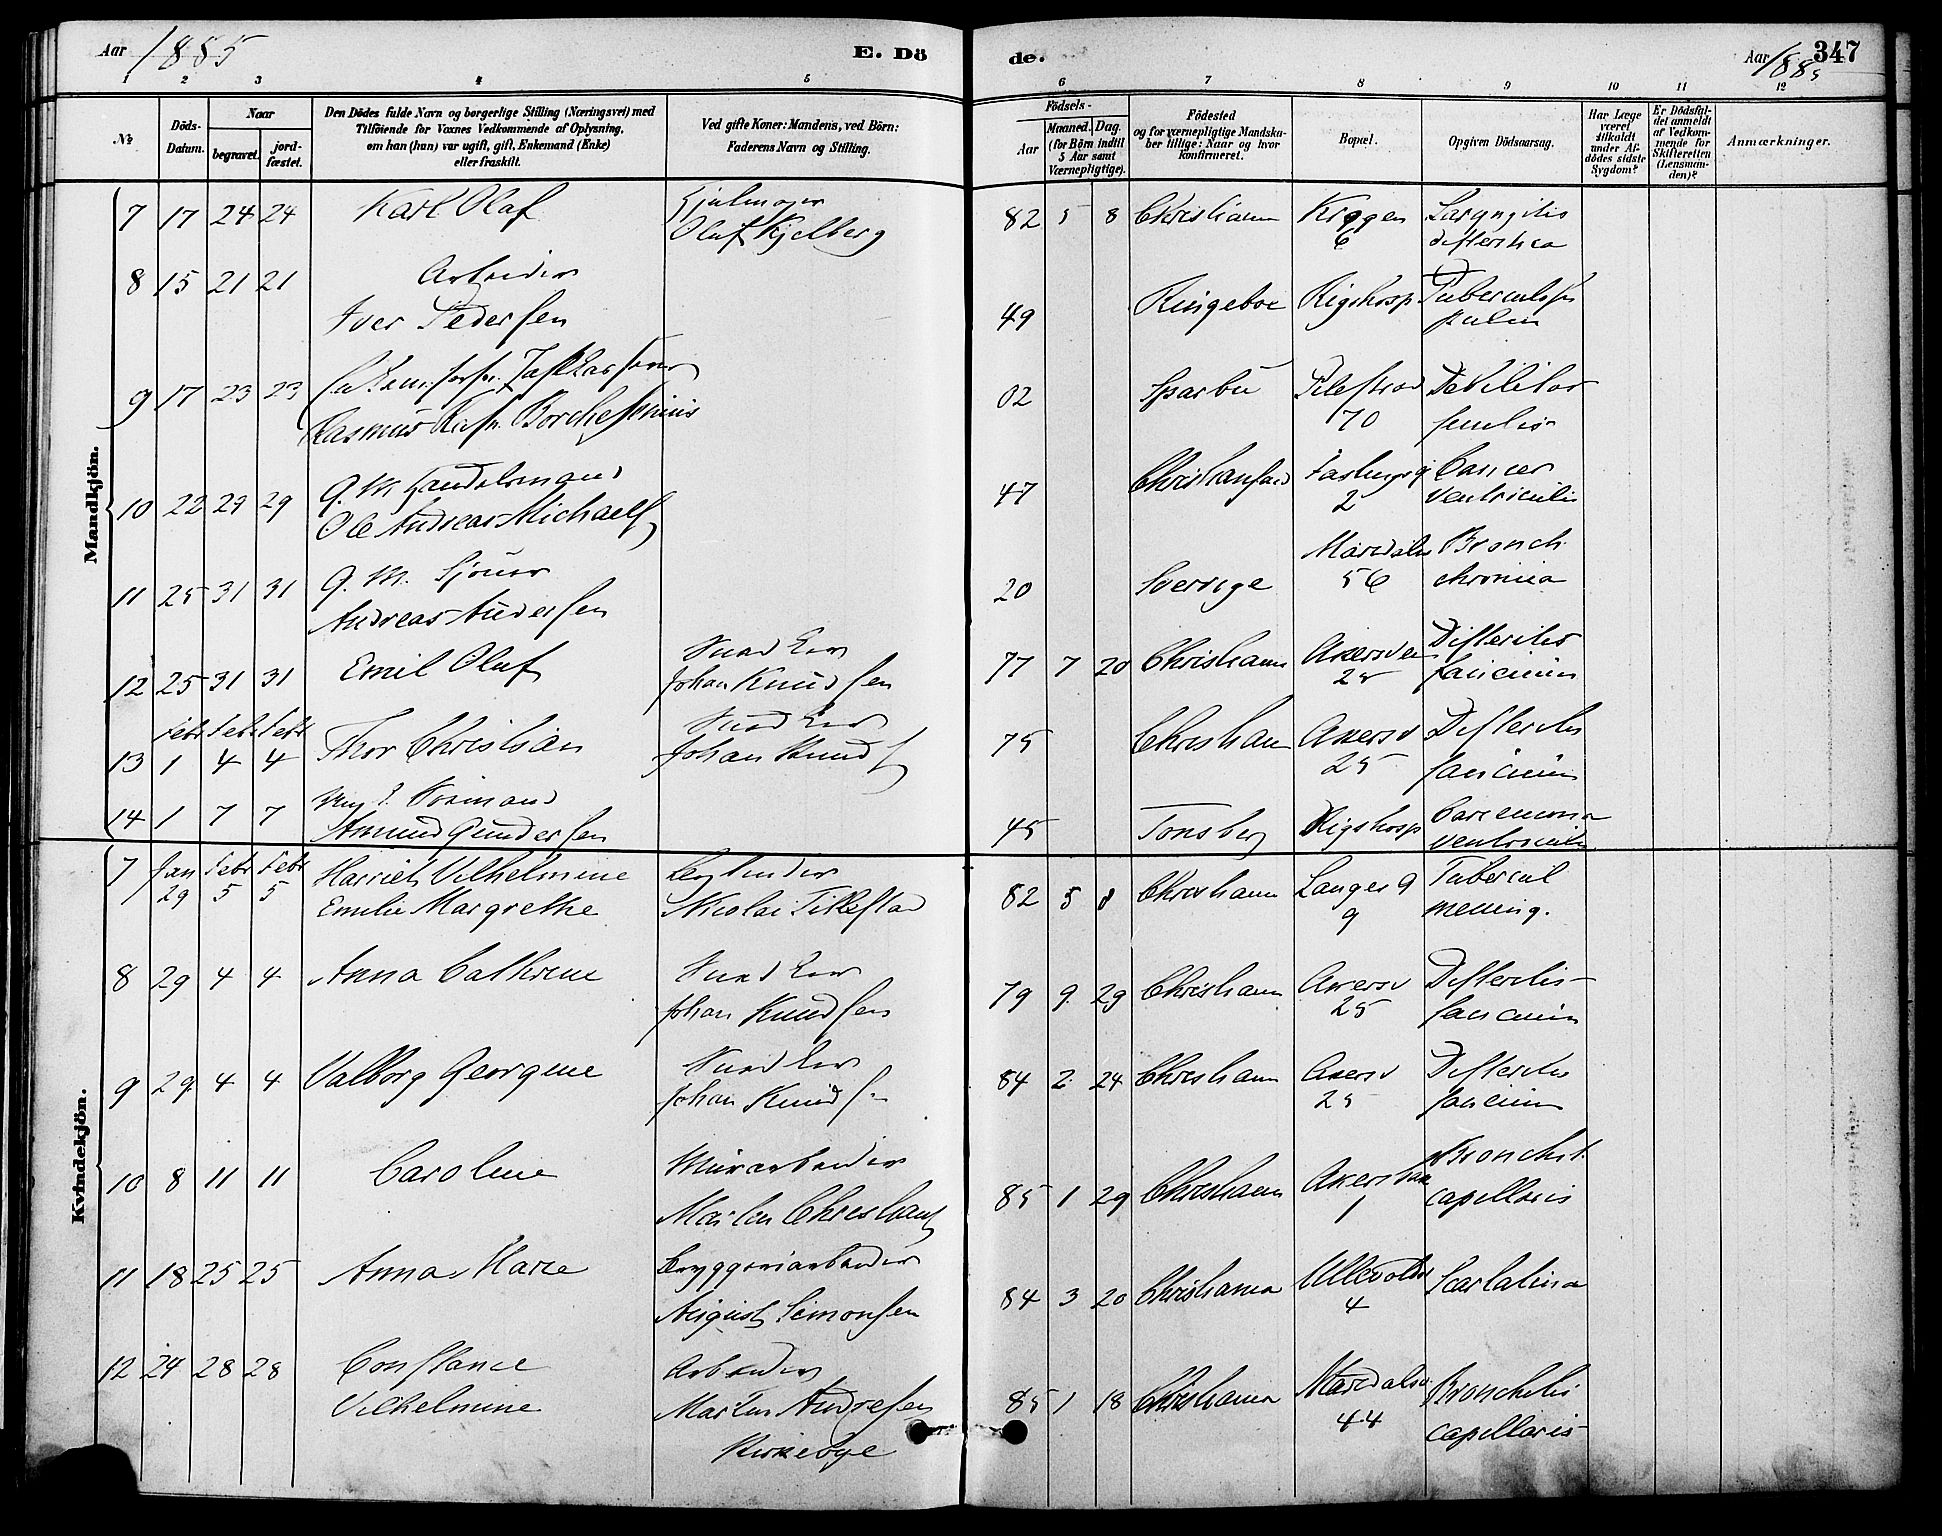 Aar 1885 E. Döde. Aar 1885 347
1 2 3 4 5 6 7 8 9 10 11 12
№
Döds-Datum.
Naar
begravet.
jordfæstet.
Den Dödes fulde Navn og borgerlige Stilling (Næringsvei) med
Tilföiende for Voxnes Vedkommende af Oplysning,
om han (hun) var ugift, gift, Enkemand (Enke)
eller fraskilt.
Ved gifte Koner: Mandens, ved Börn:
Faderens Navn og Stilling.
Födsels-
Aar
Maaned. Dag.
(for Börn indtil
5 Aar samt
Værnepligtige).
Födested
og for værnepligtige Mandska-
ber tillige: Naar og hvor
konfirmeret.
Bopæl.
Opgiven Dödsaarsag.
Har Læge
været
tilkaldt
under Af-
dödes sidste
Sygdom?
Er Dödsfal-
det anmeldt
af Vedkom-
mende for
Skifteretten
(Lensman-
den)?
Anmærkninger.
Mandkjön.
7 17 24 24 Karl Olaf 82 5 8 Christiania Krogen Laryngitis
Olaf Kjelberg 6 difteritica
8 15 21 21 Arbeider
Iver Pedersen 49 Ringeboe Rigshosp Tuberculosis
pulm
9 17 23 23 02 Sparbu Pilestræd Debilitas
Rasmus Borchgrevinck 70 senilis
10 22 29 29 G. M. Handelsmand 47 Christiansand 2 Cancer
Ole Andreas Michaels ventriculi
11 25 31 31 G. M. 20 Sverrige Maridalsv 56 Bronch
Andreas Andersen chronica
12 25 31 31 Emil Olaf Snedker 77 7 20 Christiania Akersvei 25 Difteritis
Johan Knudsen faucium
Febr Febr Febr
13 1 4 4 Thor Christian Snedker 75 Christian Akersv 25 Difteritis
Johan Knuds faucium
14 1 7 7 45 Tonsberg Rigshosp Carcinoma
Amund Gundersen ventriculi
Kvindekjön.
7 Jan 29 Febr 5 Febr 5 Harriet Vilhelmine 82 5 8 Christiania Langes g 9 Tubercul
Emilie Margrethe Nicolai mening.
8 29 4 4 Anna Cathrine Snedker 79 9 29 Christiania Akersv 25 Difteritis
Johan Knudsen faucium
9 29 4 4 Valborg Georgine Snedker 84 2 24 Christiania Akersv 25 Difteritis
Johan Knuds faucium
10 8 11 11 Caroline Murarbeider 85 1 29 Christiania 1 Bronchit.
Martin Christians capillaris
11 18 25 25 Anna Marie Bryggeriarbeider 84 3 20 Christiania Ullevolds 4 Scarlatina
August Simonsen
12 24 28 28 Constance Arbeider 85 1 18 Christiania Maridalsv 44 Bronchitis
Vilhelmine Martin Andresen capillaris
Kirkebye